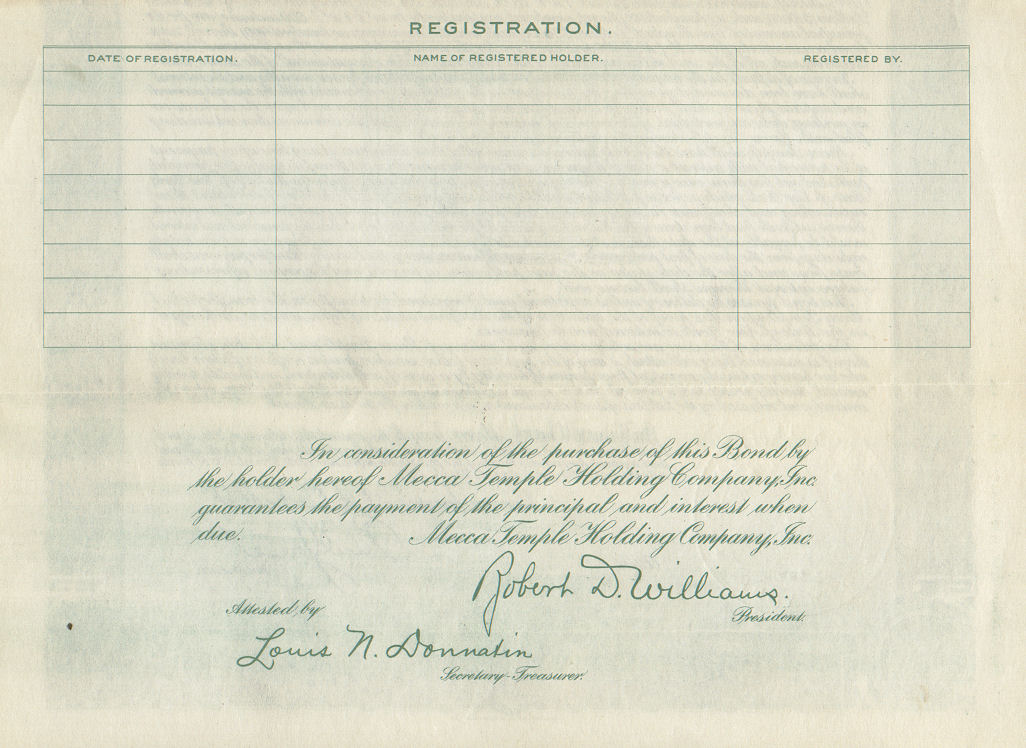 REGISTRATION.
DATE OF REGISTRATION. NAME OF REGISTERED HOLDER. REGISTERED BY.
In consideration of the purchase of this Bond by
the holder hereof Mecca Temple Holding Company, Inc.
guarantees the payment of the principal and interest when
due. Mecca Temple Holding Company, Inc.
Robert D. Williams.
President.
Attested by
Louis N. Donnatin
Secretary-Treasurer.